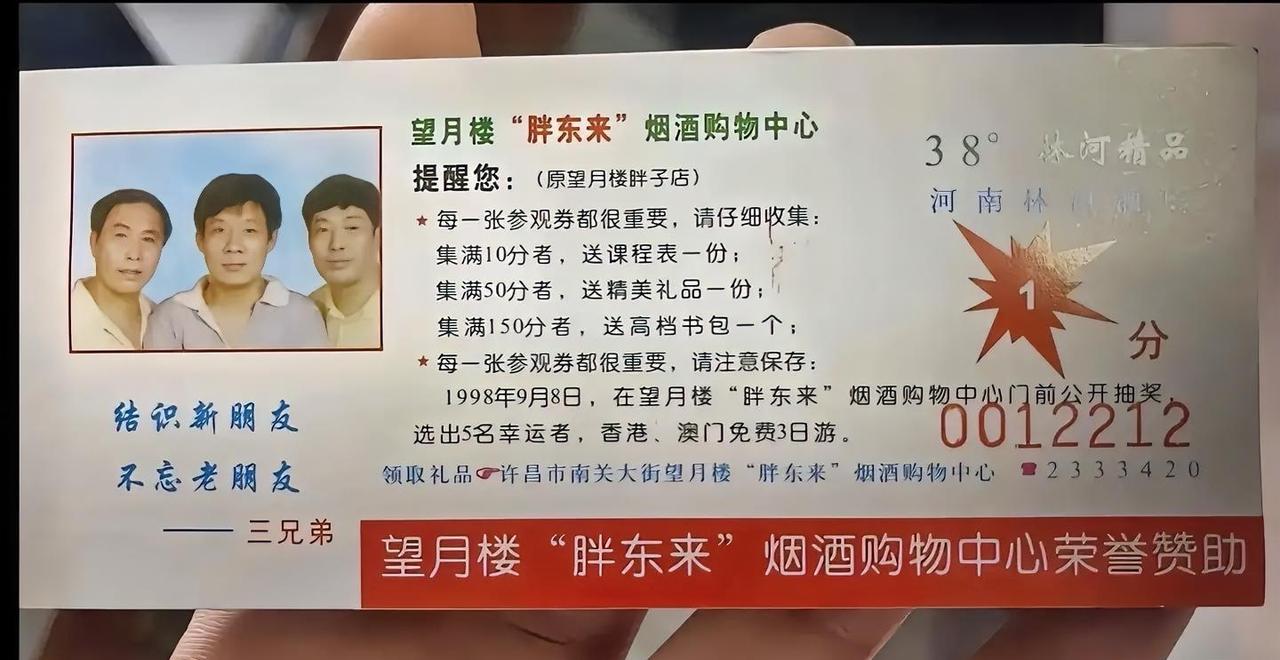 望月楼“胖东来”烟酒购物中心
提醒您：（原望月楼胖子店）
★每一张参观券都很重要，请仔细收集：
集满10分者，送课程表一份；
集满50分者，送精美礼品一份；
集满150分者，送高档书包一个；
★每一张参观券都很重要，请注意保存：
1998年9月8日，在望月楼“胖东来”烟酒购物中心门前公开抽奖，
选出5名幸运者，香港、澳门免费3日游。
领取礼品☛许昌市南关大街望月楼“胖东来”烟酒购物中心 ☎2333420
38° 林河精品
河南林河酒
1
分
0012212
结识新朋友
不忘老朋友
——三兄弟
望月楼“胖东来”烟酒购物中心荣誉赞助